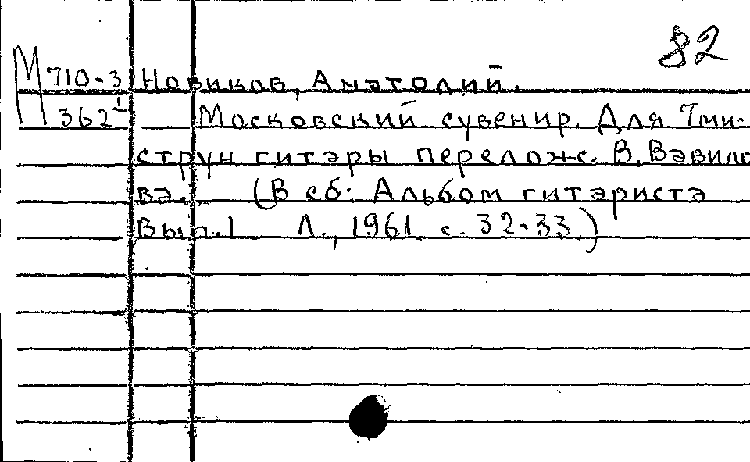 82
М 710-3 Новиков, Анатолий.
362¹ Московский сувенир. Для 7ми-
струн гитары перелож. В. Вавило
ва. (В сб: Альбом гитариста
Вып. 1 Л., 1961 с. 32-33.)